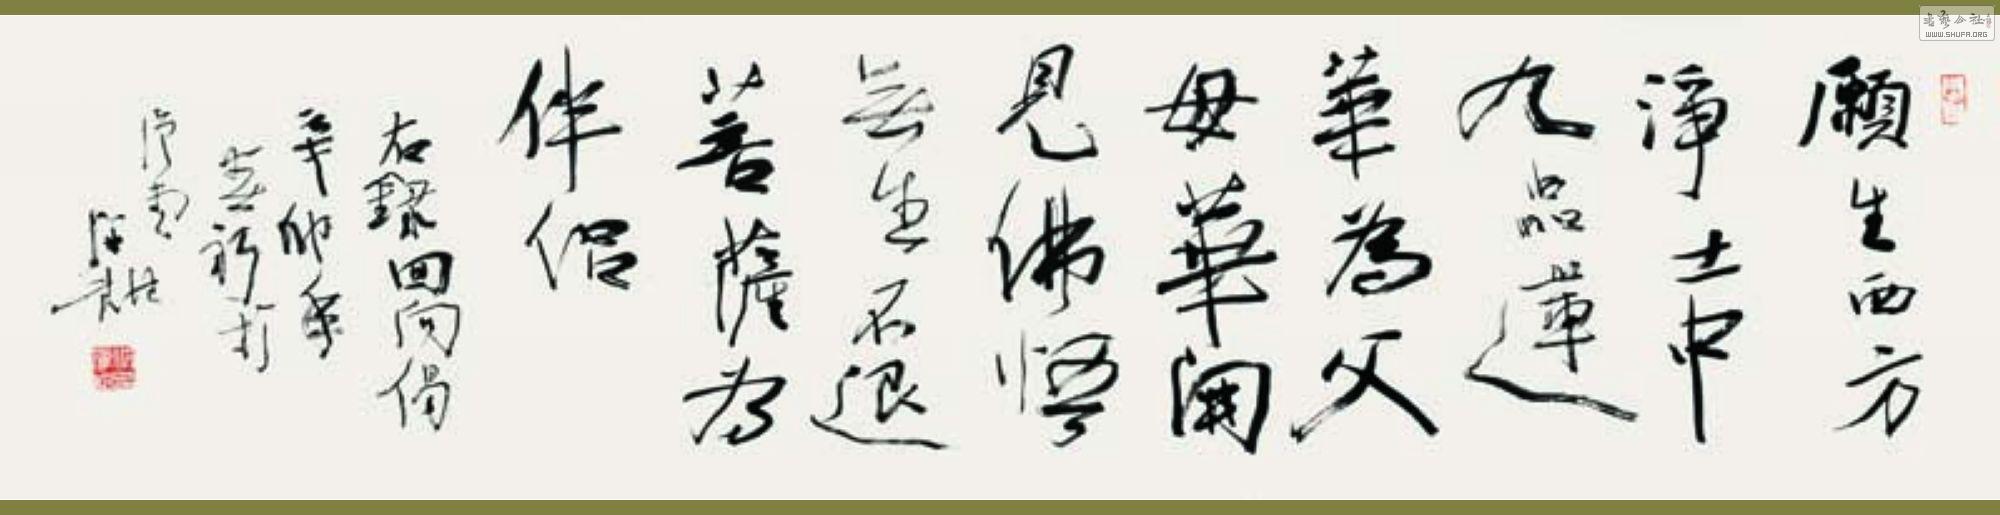 願生西方
淨土中
九品蓮
華為父
母華開
見佛悟
無生不退
菩薩為
伴侶
右錄回向偈
辛卯年
WWW.SHUFA.ORG